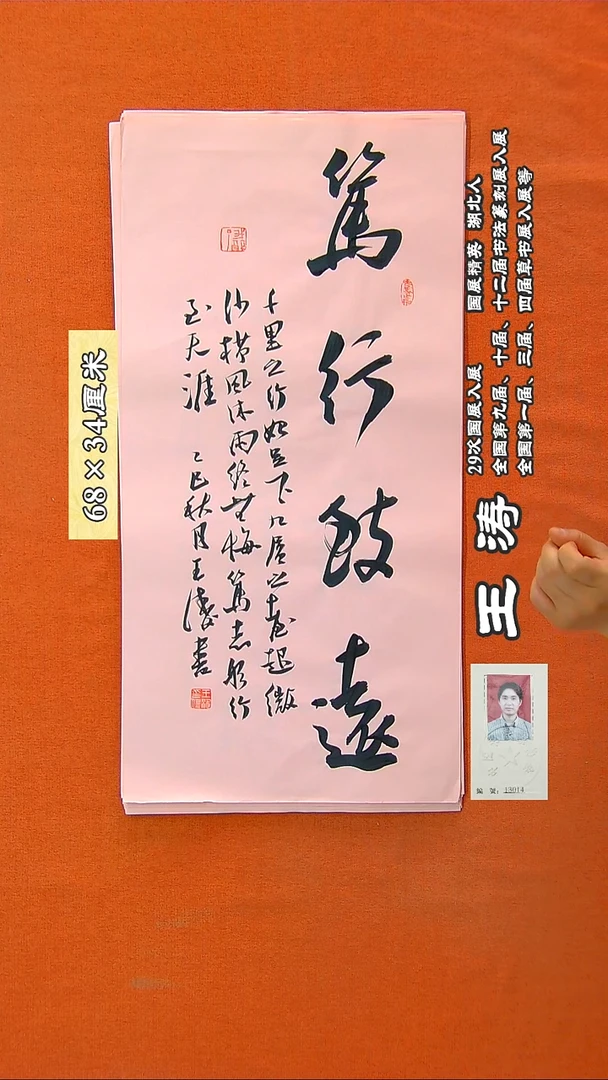 篤行致遠
千里之行始足下九層之臺起微
沙櫛風沐雨終無悔篤志躬行
至天涯 乙巳秋月王濤書
68×34厘米
29次国展入展 国展精英 湖北人
全国第九届、十届、十二届书法篆刻展入展
全国第一届、三届、四届草书展入展等
王涛
編 號：13014